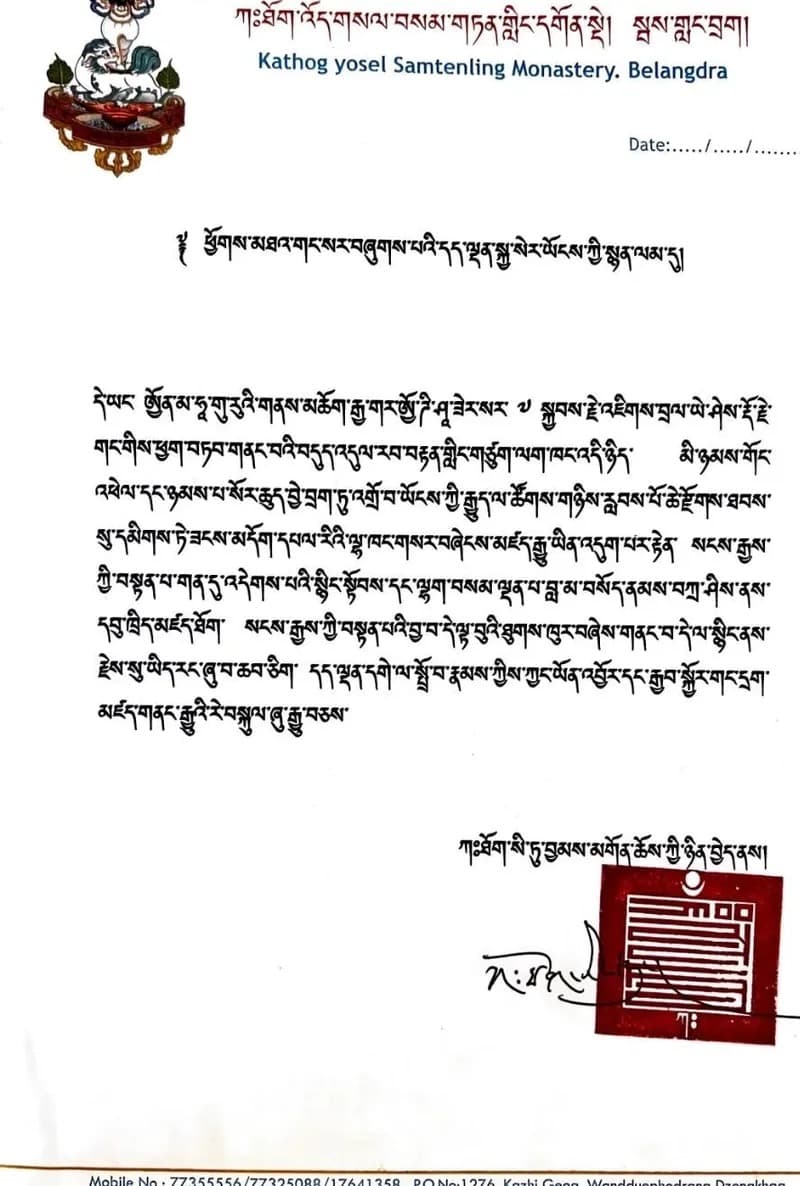 ཀཿཐོག་འོད་གསལ་བསམ་གཏན་གླིང་དགོན་སྡེ། སྦས་གླང་བྲག།
Kathog yosel Samtenling Monastery. Belangdra
Date:...../...../.......
༄༅ ཕྱོགས་མཐའ་གང་སར་བཞུགས་པའི་དད་ལྡན་སྐྱ་སེར་ཡོངས་ཀྱི་སྙན་ལམ་དུ།
དེ་ཡང་ ཨོྱན་མ་ཧཱ་གུ་རུའི་གནས་མཆོག་རྒྱ་གར་ཨོ་ཌི་ཤཱ་ཟེར་སར་ ༧ སྐྱབས་རྗེ་འཇིགས་བྲལ་ཡེ་ཤེས་རྡོ་རྗེ་
གང་གིས་ཕྱག་བཏབ་གནང་བའི་བདུད་འདུལ་རབ་བརྟན་གླིང་གཙུག་ལག་ཁང་འདི་ཉིད་ མི་ཉམས་གོང་
འཕེལ་དང་ཉམས་པ་སོར་ཆུད་བྱེ་བྲག་ཏུ་འགྲོ་བ་ཡོངས་ཀྱི་རྒྱུད་ལ་ཚོགས་གཉིས་རླབས་པོ་ཆེ་རྫོགས་ཐབས་
སུ་དམིགས་ཏེ་ཟངས་མདོག་དཔལ་རིའི་ལྷ་ཁང་གསར་བཞེངས་མཛད་རྒྱུ་ཡིན་འདུག་པར་རྟེན་ སངས་རྒྱས་
ཀྱི་བསྟན་པ་གན་དུ་འདེགས་པའི་སྙིང་སྟོབས་དང་ལྷག་བསམ་ལྡན་པ་བླ་མ་བསོད་ནམས་བཀྲ་ཤིས་ནས་
དབུ་ཁྲིད་མཛད་ཐོག་ སངས་རྒྱས་ཀྱི་བསྟན་པའི་བྱ་བ་དེ་ལྟ་བུའི་ཐུགས་ཁུར་བཞེས་གནང་བ་དེ་ལ་སྙིང་ནས་
རྗེས་སུ་ཡིད་རང་ཞུ་བ་ཆབ་ཅིག་ དད་ལྡན་དགེ་ལ་སྤྲོ་བ་རྣམས་ཀྱིས་ཀྱང་ཡོན་འབྱོར་དང་རྒྱབ་སྐྱོར་གང་དྲག་
མཛད་གནང་རྒྱུའི་རེ་བསྐུལ་ཞུ་རྒྱུ་བཅས་
ཀཿཐོག་སི་ཏུ་བྱམས་མགོན་ཆོས་ཀྱི་ཉིན་བྱེད་ནས།
ཀཿ
Mobile No : 77355556/77325088/17641358 P.O No:1276, Kazhi Geog, Wangduephodrang Dzongkhag